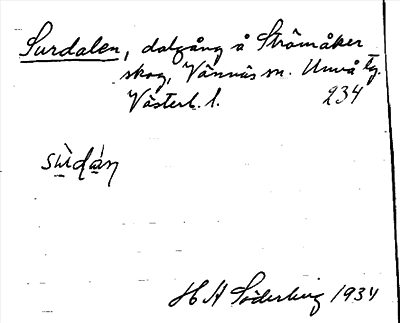 Surdalen, dalgång å Strömåker
skog, Vännäs sn. Umeå tg.
Västerb. l. 234
sùdáṇ
H A Söderberg 1934